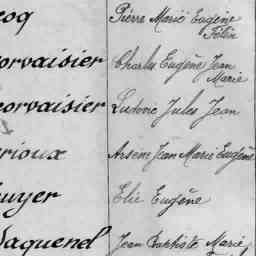 coq Pierre Marie Eugène
Félix
orvaisier Charles Eugène Jean
Marie
corvaisier Ludovic Jules Jean
rioux Arsène Jean Marie Eugène
huyer Elie Eugène
Jean Baptiste Marie